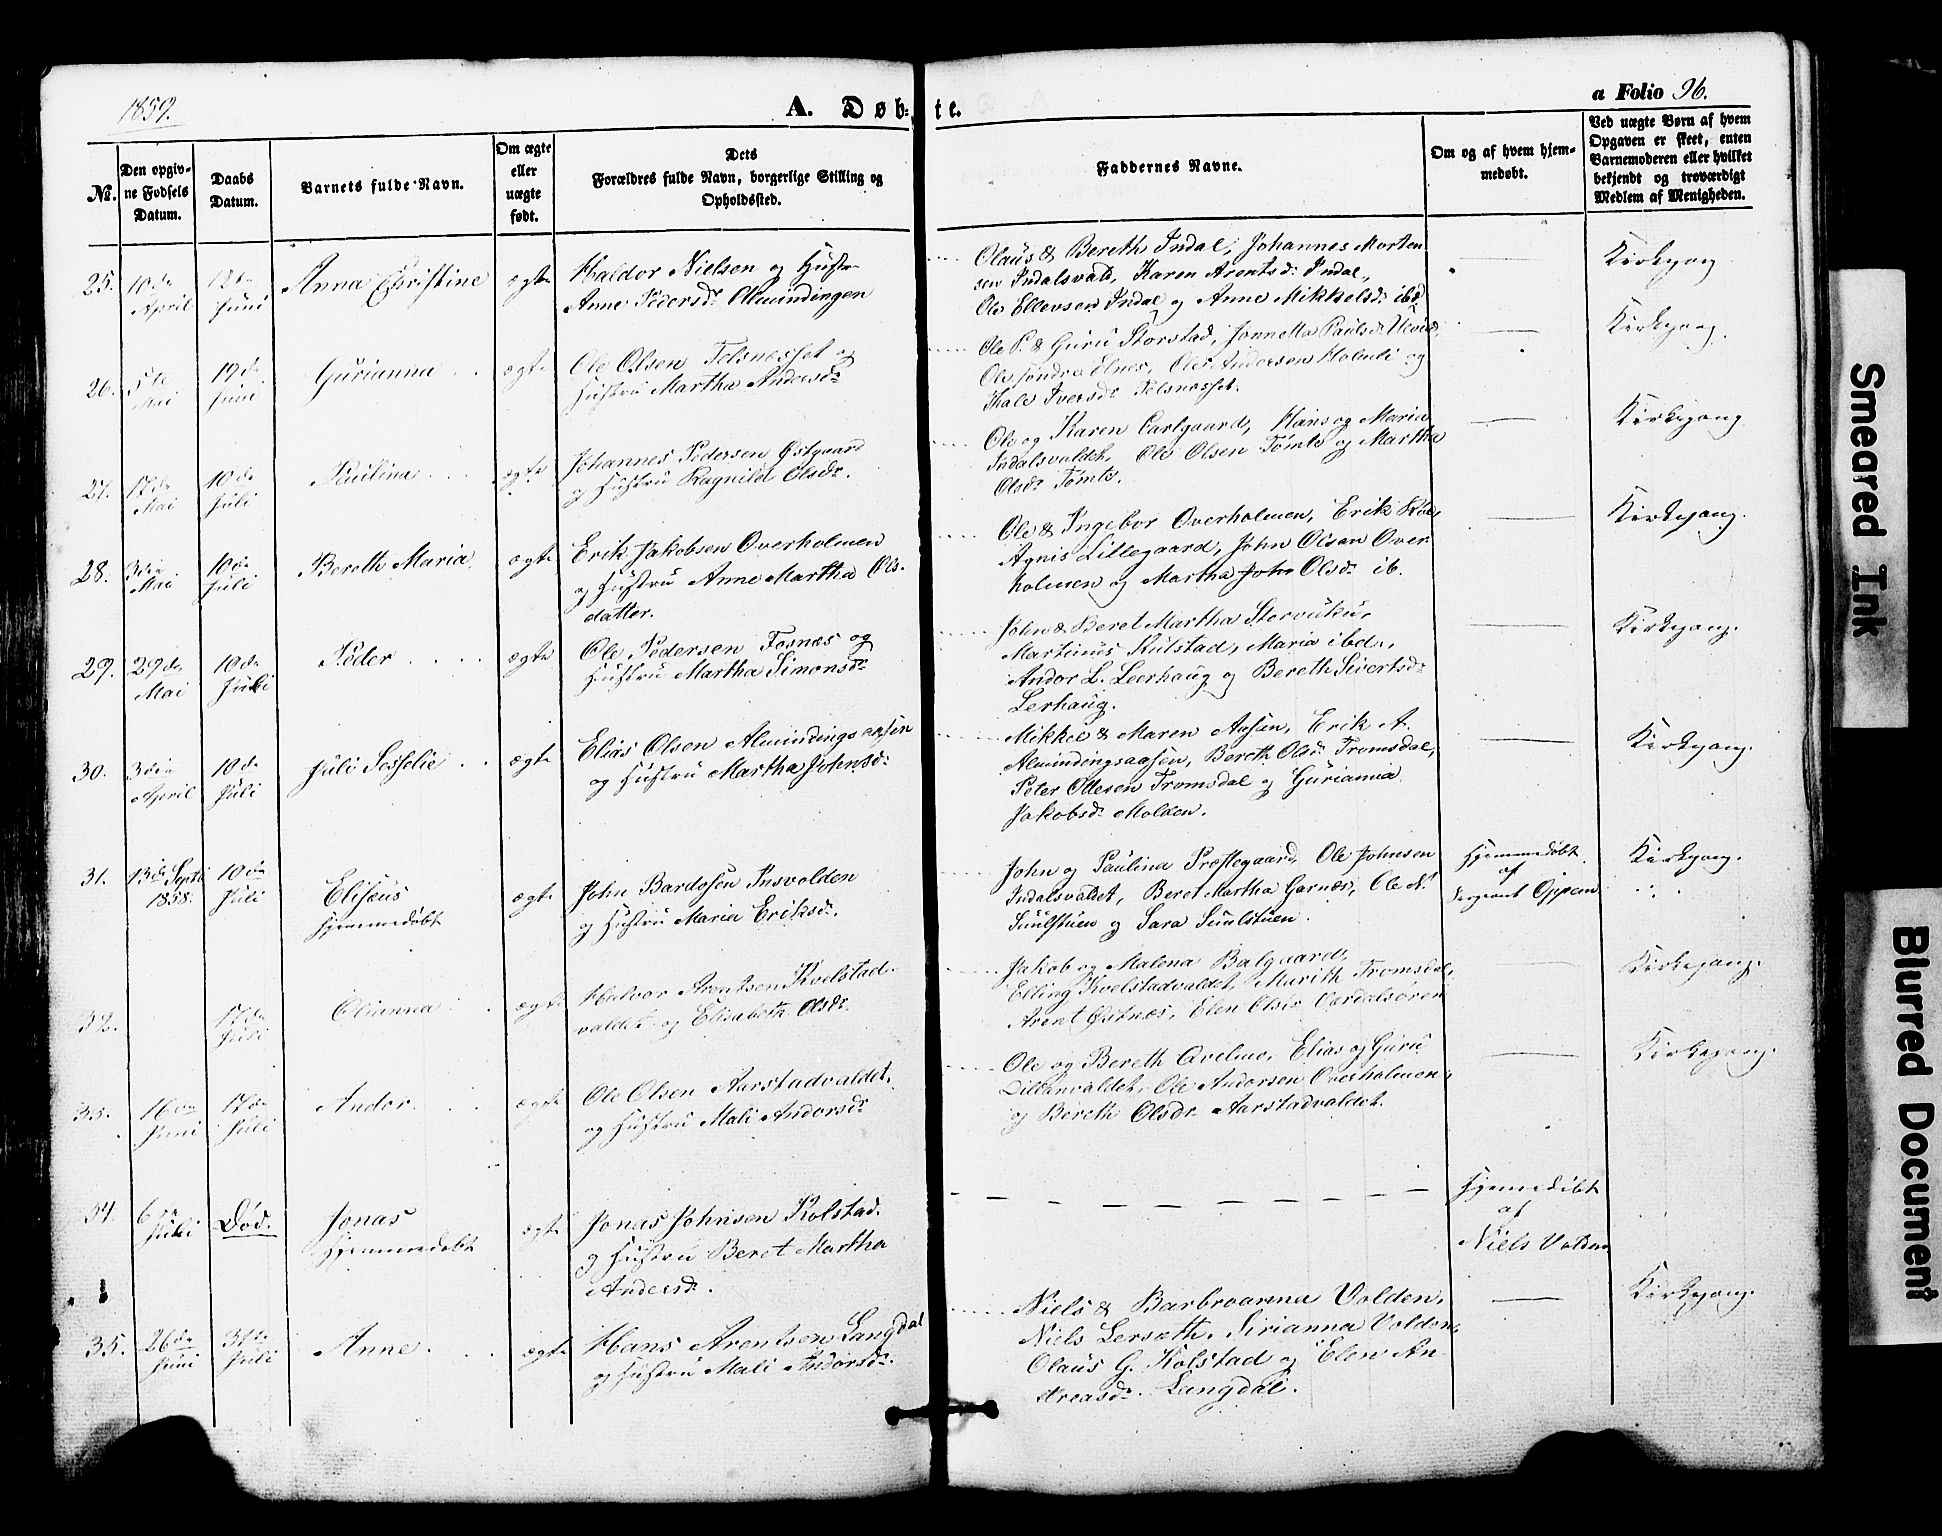 1859.
A. Døbte.
a Folio 96.
№.
Den opgivne Fødsels Datum.
Daabs Datum.
Barnets fulde Navn.
Om ægte eller uægte født.
Dets Forældres fulde Navn, borgerlige Stilling og Opholdssted.
Faddernes Navne.
Om og af hvem hjemmedøbt.
Ved uægte Børn af hvem Opgaven er skeet, enten Barnemoderen eller hvilket bekjendt og troværdigt Medlem af Menigheden.
25. 10de April 12te Juni Anna Christine ægte
Haldor Nielsen og Hustru
Anne Pedersd. Almindingen
Olaus & Bereth Indal, Johannes Morten
sen Indalsvald, Karen Arentsd. Indal,
Ole Ellevsen Indal og Anne Mikkelsd. ibd.
Kirkegang
26. 5te Mai 19de Juni Gurianna ægte
Ole Olsen Telsnesset og
Hustru Martha Andersdr
Ole P. & Guru Storstad, Jonnetta Paulsd.
Ole Elnes, Ole Andersen Holmli og
Iversdr Telsnesset.
Kirkegang.
27. 17de Mai 10de Juli Paulina ægte
Johannes Pedersen Østgaard
og Hustru Ragnild Olsdr.
Ole og Karen Carlgaard, Hans og Maria
Indalsvaldet, Ole Olsen Tømte og Martha
Olsdr Tømte.
Kirkegang
28. 3die Mai 10de Juli Bereth Maria ægte
Erik Jakobsen Overholmen
og Hustru Anne Martha Ols.
datter.
Ole & Ingebor Overholmen, Erik
Agnis Lillegaard, John Olsen Over
holmen og Martha John Olsdr ib.
Kirkegang.
29. 29de Mai 10de Juli Peder ægte
Ole Pedersen Fosnes og
Hustru Martha Simonsdr
John & Beret Martha Storvuku,
Martinus Kulstad, Maria ibd.,
Andor L. Leerhaug og Bereth Sivertsdr
Lerhaug.
Kirkegang.
30. 3die April 10de Juli Juli Sesselie ægte
Elias Olsen Almindingsaasen
og Hustru Martha Johnsdr
Mikkel & Maren Aasen, Erik A.
Almindingsaasen, Bereth Olsdr Tromsdal,
Peter Ottesen Tromsdal og Gurianna
Jakobsdr Molden.
Kirkegang.
31. 13de Septr 1858. 10de Juli Eliseus
Hjemmedøbt ægte
John Bardosen Insvolden
og Hustru Maria Eriksdr.
John og Paulina Præstegaard, Ole Johnsen
Indalsvaldet, Beret Martha Garnes, Ole N.
Suulstuen og Sara Suulstuen.
Hjemmedøbt
af
Sergeant Oppem
Kirkegang.
32. 17de Juli Olianna ægte
Halvor Arentsen Kvelstad
valdet og Elisabeth Olsdr.
Jakob og Malena Balgaard,
Elling Kvelstadvaldet, Marith Tromsdal,
Arent Østnes, Elen Olsdr Værdalsøren
Kirkegang.
33. 16de Juni 17de Juli Andor ægte
Ole Olsen Aarstadvaldet,
og Hustru Mali Andorsdr
Ole og Bereth Avelmo, Elias og Guru
Ole Andersen Overholmen
og Bereth Olsdr Aarstadvaldet.
Kirkegang.
34. 6te Juli Død. Jonas
Hjemmedøbt ægte
Jonas Johnsen Kolstad.
og Hustru Beret Martha
Andersdr.
Hjemmedøbt
af
Niels Volden
35. 26de Juni 31te Juli Anne ægte
Hans Arentsen Langdal
og Hustru Mali Andorsdr.
Niels & Barbroanna Volden,
Niels Lersæth, Sirianna Volden,
Olaus G. Kolstad og Elen An-
dreasdr. Langdal.
Kirkegang.
Smeared Ink
Blurred Document